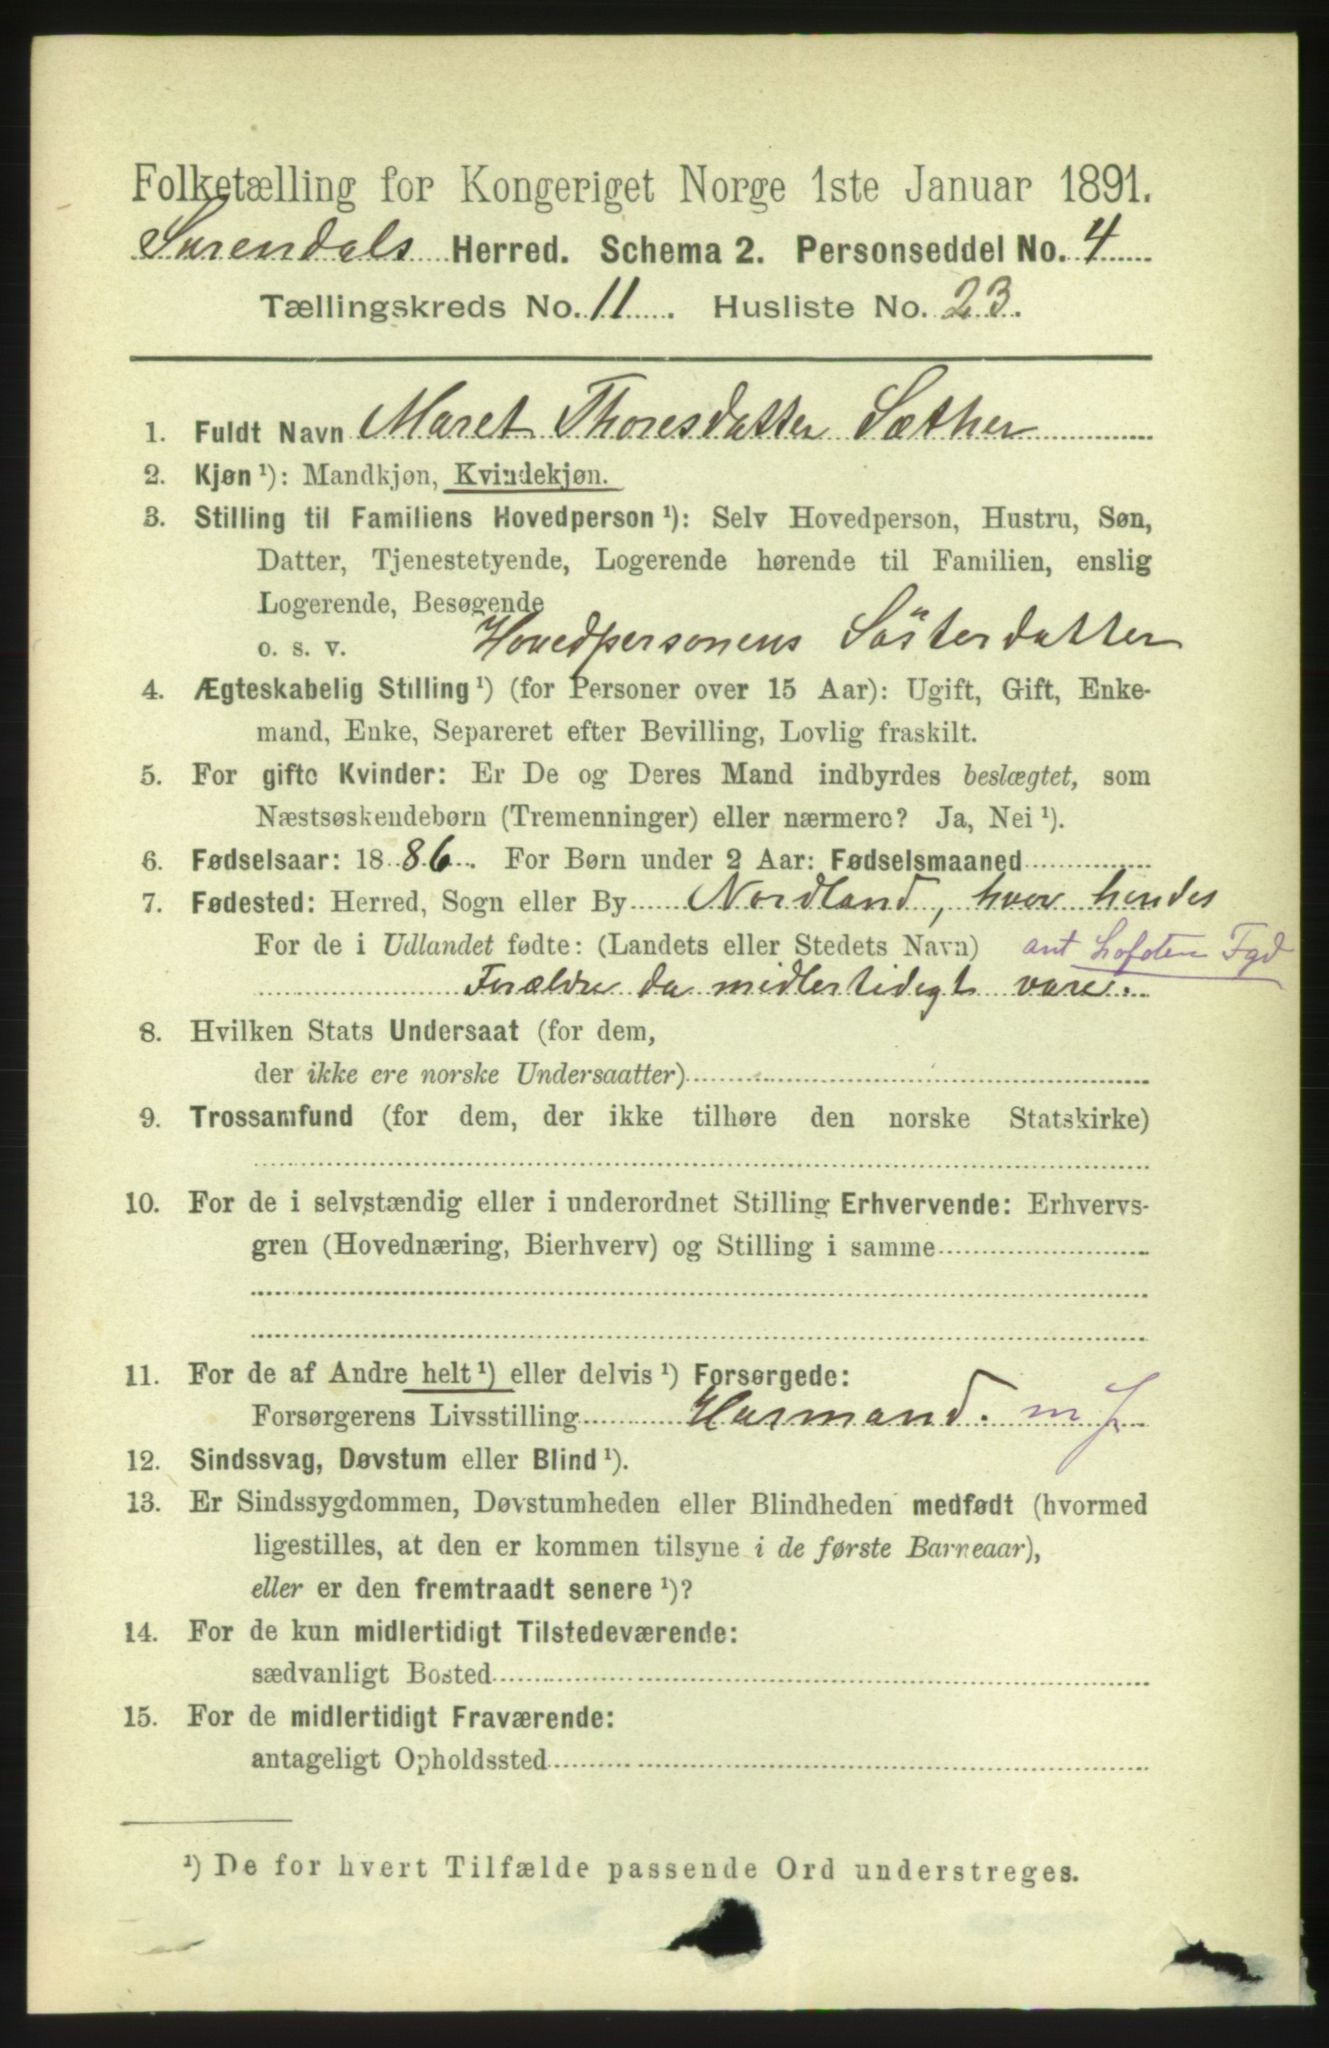 Folketælling for Kongeriget Norge 1ste Januar 1891.
Surendals Herred. Schema 2. Personseddel No. 4
Tællingskreds No. 11. Husliste No. 23.
1. Fuldt Navn Maret Thoresdatter Sæther
2. Kjøn ¹): Mandkjøn, Kvindekjøn.
3. Stilling til Familiens Hovedperson ¹): Selv Hovedperson, Hustru, Søn,
Datter, Tjenestetyende, Logerende hørende til Familien, enslig
Logerende, Besøgende
o. s. v. Hovedpersonens Søsterdatter
4. Ægteskabelig Stilling ¹) (for Personer over 15 Aar): Ugift, Gift, Enke-
mand, Enke, Separeret efter Bevilling, Lovlig fraskilt.
5. For gifte Kvinder: Er De og Deres Mand indbyrdes beslægtet, som
Næstsøskendebørn (Tremenninger) eller nærmere? Ja, Nei ¹).
6. Fødselsaar: 1886. For Børn under 2 Aar: Fødselsmaaned
7. Fødested: Herred, Sogn eller By Nordland, hvor hendes
For de i Udlandet fødte: (Landets eller Stedets Navn) ant Lofoten Fgd
Forældre da midlertidigt vare.
8. Hvilken Stats Undersaat (for dem,
der ikke ere norske Undersaatter)
9. Trossamfund (for dem, der ikke tilhøre den norske Statskirke)
10. For de i selvstændig eller i underordnet Stilling Erhvervende: Erhvervs-
gren (Hovednæring, Bierhverv) og Stilling i samme
11. For de af Andre helt ¹) eller delvis ¹) Forsørgede:
Forsørgerens Livsstilling Husmand. m J
12. Sindssvag, Døvstum eller Blind ¹).
13. Er Sindssygdommen, Døvstumheden eller Blindheden medfødt (hvormed
ligestilles, at den er kommen tilsyne i de første Barneaar),
eller er den fremtraadt senere ¹)?
14. For de kun midlertidigt Tilstedeværende:
sædvanligt Bosted
15. For de midlertidigt Fraværende:
antageligt Opholdssted
¹) De for hvert Tilfælde passende Ord understreges.